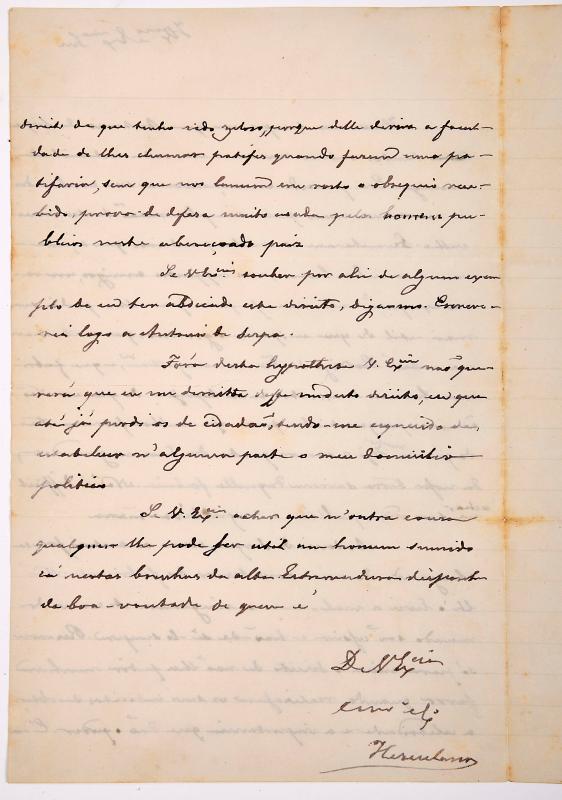 direito de que tenho sido zeloso, porque delle deriva a facul-
dade de lhes chamar patifes quando fazem uma pa-
tifaria, sem que nos lancem em rosto o obsequio rece-
bido, prova de defesa muito usada pelos homens pu-
blicos neste abençoado paiz
Se V. Ex.cia souber por ahi de algum exem-
plo de eu ter abdicado este direito, diga-mo. Escreve-
rei logo a Antonio de Serpa.
Fóra desta hypothese V. Ex.cia não que-
rerá que eu me demitta desse modesto direito, eu que
até já perdi os de cidadão, tendo-me esquecido de
estabelecer n'alguma parte o meu domicilio
politico
Se V. Ex.cia achar que n'outra cousa
qualquer lhe pode ser util um homem sumido
cá nestas brenhas da alta Estremadura disponha
de boa-vontade de quem é
De V. Ex.cia
Herculano